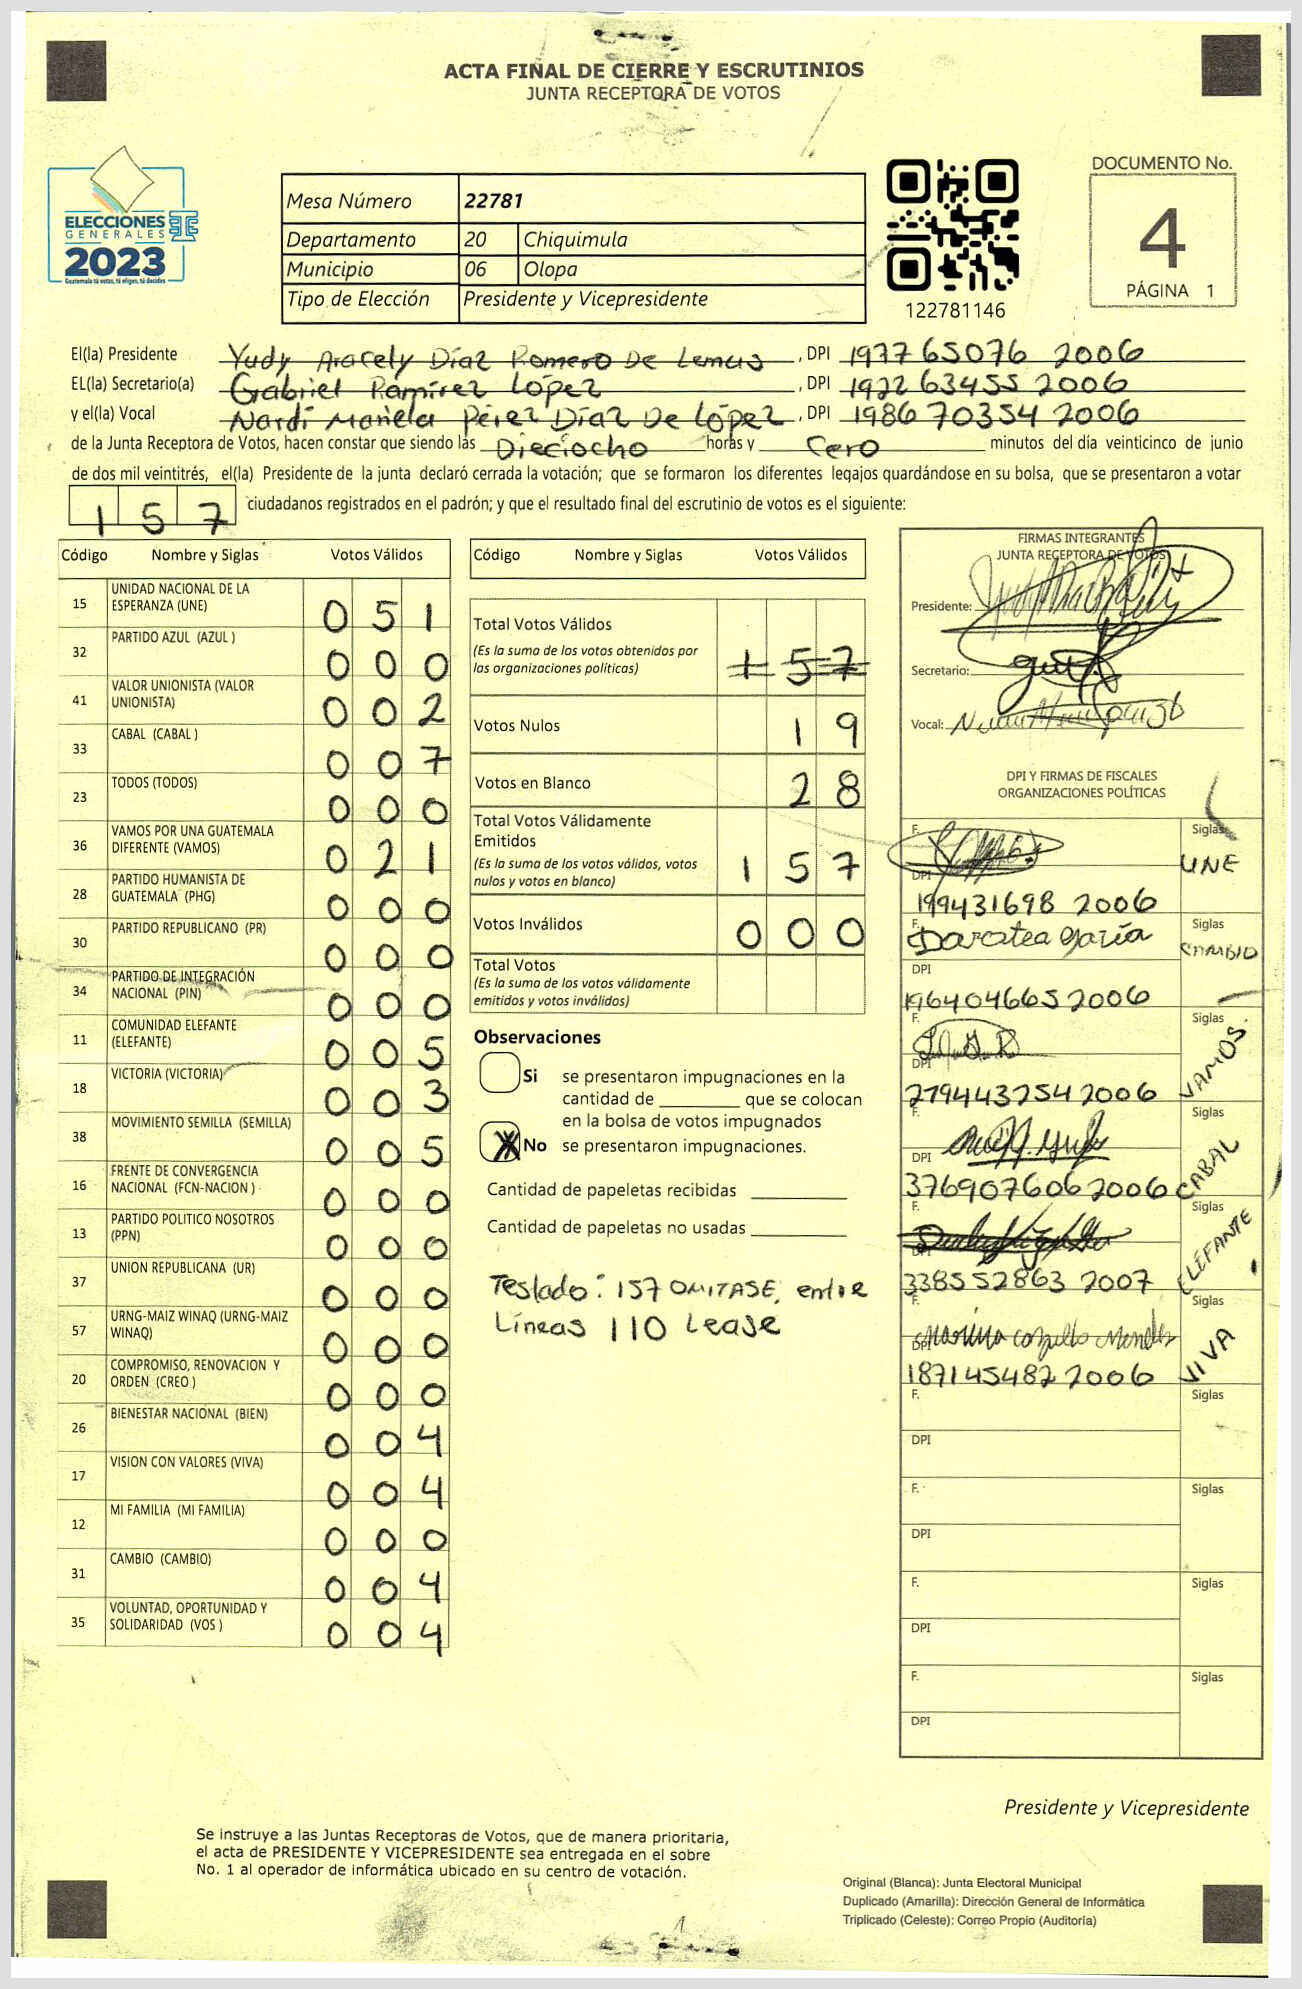 ACTA FINAL DE CIERRE Y ESCRUTINIOS
JUNTA RECEPTORA DE VOTOS
ELECCIONES
GENERALES
2023
Guatemala tú votas, tú eliges, tú decides
Mesa Número 22781
Departamento 20 Chiquimula
Municipio 06 Olopa
Tipo de Elección Presidente y Vicepresidente
122781146
DOCUMENTO No.
4
PÁGINA 1
El(la) Presidente Yudy Aracely Díaz Romero De Lemus, DPI 1977 65076 2006
EL(la) Secretario(a) Gabriel Ramírez López, DPI 1922 63455 2006
y el(la) Vocal Nardi Mariela Pérez Díaz De López, DPI 1986 70354 2006
de la Junta Receptora de Votos, hacen constar que siendo las Dieciocho horas y Cero minutos del día veinticinco de junio
de dos mil veintitrés, el(la) Presidente de la junta declaró cerrada la votación; que se formaron los diferentes legajos guardándose en su bolsa, que se presentaron a votar
157 ciudadanos registrados en el padrón; y que el resultado final del escrutinio de votos es el siguiente:
Código Nombre y Siglas Votos Válidos
15 UNIDAD NACIONAL DE LA
ESPERANZA (UNE) 0 5 1
32 PARTIDO AZUL (AZUL ) 0 0 0
41 VALOR UNIONISTA (VALOR
UNIONISTA) 0 0 2
33 CABAL (CABAL ) 0 0 7
23 TODOS (TODOS) 0 0 0
36 VAMOS POR UNA GUATEMALA
DIFERENTE (VAMOS) 0 2 1
28 PARTIDO HUMANISTA DE
GUATEMALA (PHG) 0 0 0
30 PARTIDO REPUBLICANO (PR) 0 0 0
34 PARTIDO DE INTEGRACIÓN
NACIONAL (PIN) 0 0 0
11 COMUNIDAD ELEFANTE
(ELEFANTE) 0 0 5
18 VICTORIA (VICTORIA) 0 0 3
38 MOVIMIENTO SEMILLA (SEMILLA) 0 0 5
16 FRENTE DE CONVERGENCIA
NACIONAL (FCN-NACION ) 0 0 0
13 PARTIDO POLITICO NOSOTROS
(PPN) 0 0 0
37 UNION REPUBLICANA (UR) 0 0 0
57 URNG-MAIZ WINAQ (URNG-MAIZ
WINAQ) 0 0 0
20 COMPROMISO, RENOVACION Y
ORDEN (CREO ) 0 0 0
26 BIENESTAR NACIONAL (BIEN) 0 0 4
17 VISION CON VALORES (VIVA) 0 0 4
12 MI FAMILIA (MI FAMILIA) 0 0 0
31 CAMBIO (CAMBIO) 0 0 4
35 VOLUNTAD, OPORTUNIDAD Y
SOLIDARIDAD (VOS ) 0 0 4
Código Nombre y Siglas Votos Válidos
Total Votos Válidos
(Es la suma de los votos obtenidos por
las organizaciones políticas) 1 5 7
Votos Nulos 1 9
Votos en Blanco 2 8
Total Votos Válidamente
Emitidos
(Es la suma de los votos válidos, votos
nulos y votos en blanco) 1 5 7
Votos Inválidos 0 0 0
Total Votos
(Es la suma de los votos válidamente
emitidos y votos inválidos)
Observaciones
Si se presentaron impugnaciones en la
cantidad de ________ que se colocan
en la bolsa de votos impugnados
No se presentaron impugnaciones.
Cantidad de papeletas recibidas
Cantidad de papeletas no usadas
Teslado: 157 OMITASE, entre
Líneas 110 Lease
FIRMAS INTEGRANTES
JUNTA RECEPTORA DE VOTOS
Presidente:
Secretario:
Vocal:
DPI Y FIRMAS DE FISCALES
ORGANIZACIONES POLÍTICAS
F. Siglas
UNE
DPI
199431698 2006
F. Dorotea García Siglas
CAMBIO
DPI
196404665 2006
F. Siglas
VAMOS
DPI
2794432542006
F. Siglas
CABAL
DPI
3769076062006
F. Siglas
ELEFANTE
DPI
338552863 2007
F. Siglas
VIVA
DPI
187145482 2006
F. Siglas
DPI
F. Siglas
DPI
F. Siglas
DPI
F. Siglas
DPI
Presidente y Vicepresidente
Se instruye a las Juntas Receptoras de Votos, que de manera prioritaria,
el acta de PRESIDENTE Y VICEPRESIDENTE sea entregada en el sobre
No. 1 al operador de informática ubicado en su centro de votación.
Original (Blanca): Junta Electoral Municipal
Duplicado (Amarilla): Dirección General de Informática
Triplicado (Celeste): Correo Propio (Auditoría)